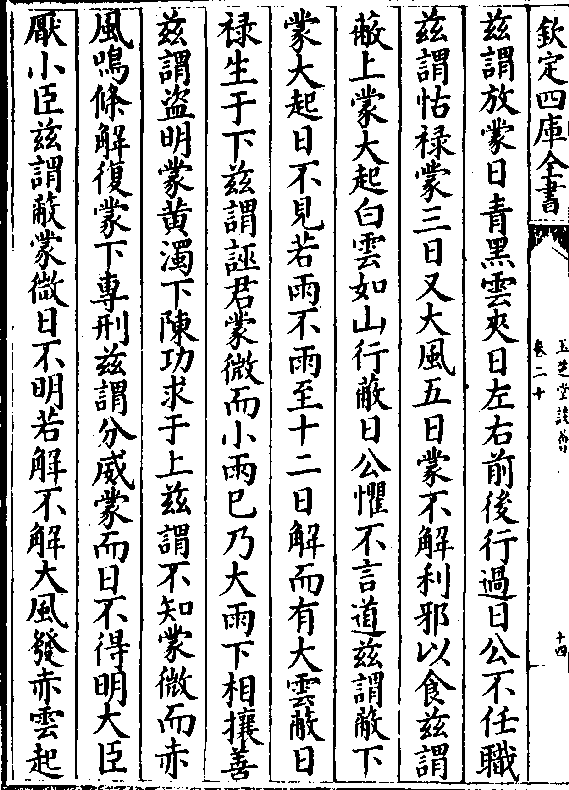 欽定四庫全書
玉芝堂談薈
卷二十
十四
兹謂放蒙日青黑雲夾日左右前後行過日公不任職
兹謂怙禄蒙三日又大風五日蒙不解利邪以食兹謂
蔽上蒙大起白雲如山行蔽日公懼不言道兹謂蔽下
蒙大起日不見若雨不雨至十二日解而有大雲蔽日
禄生于下兹謂誣君蒙微而小雨已乃大雨下相攘善
兹謂盜明蒙黄濁下陳功求于上兹謂不知蒙微而赤
風鳴條解復蒙下專刑兹謂分威蒙而日不得明大臣
厭小臣兹謂蔽蒙微日不明若解不解大風發赤雲起